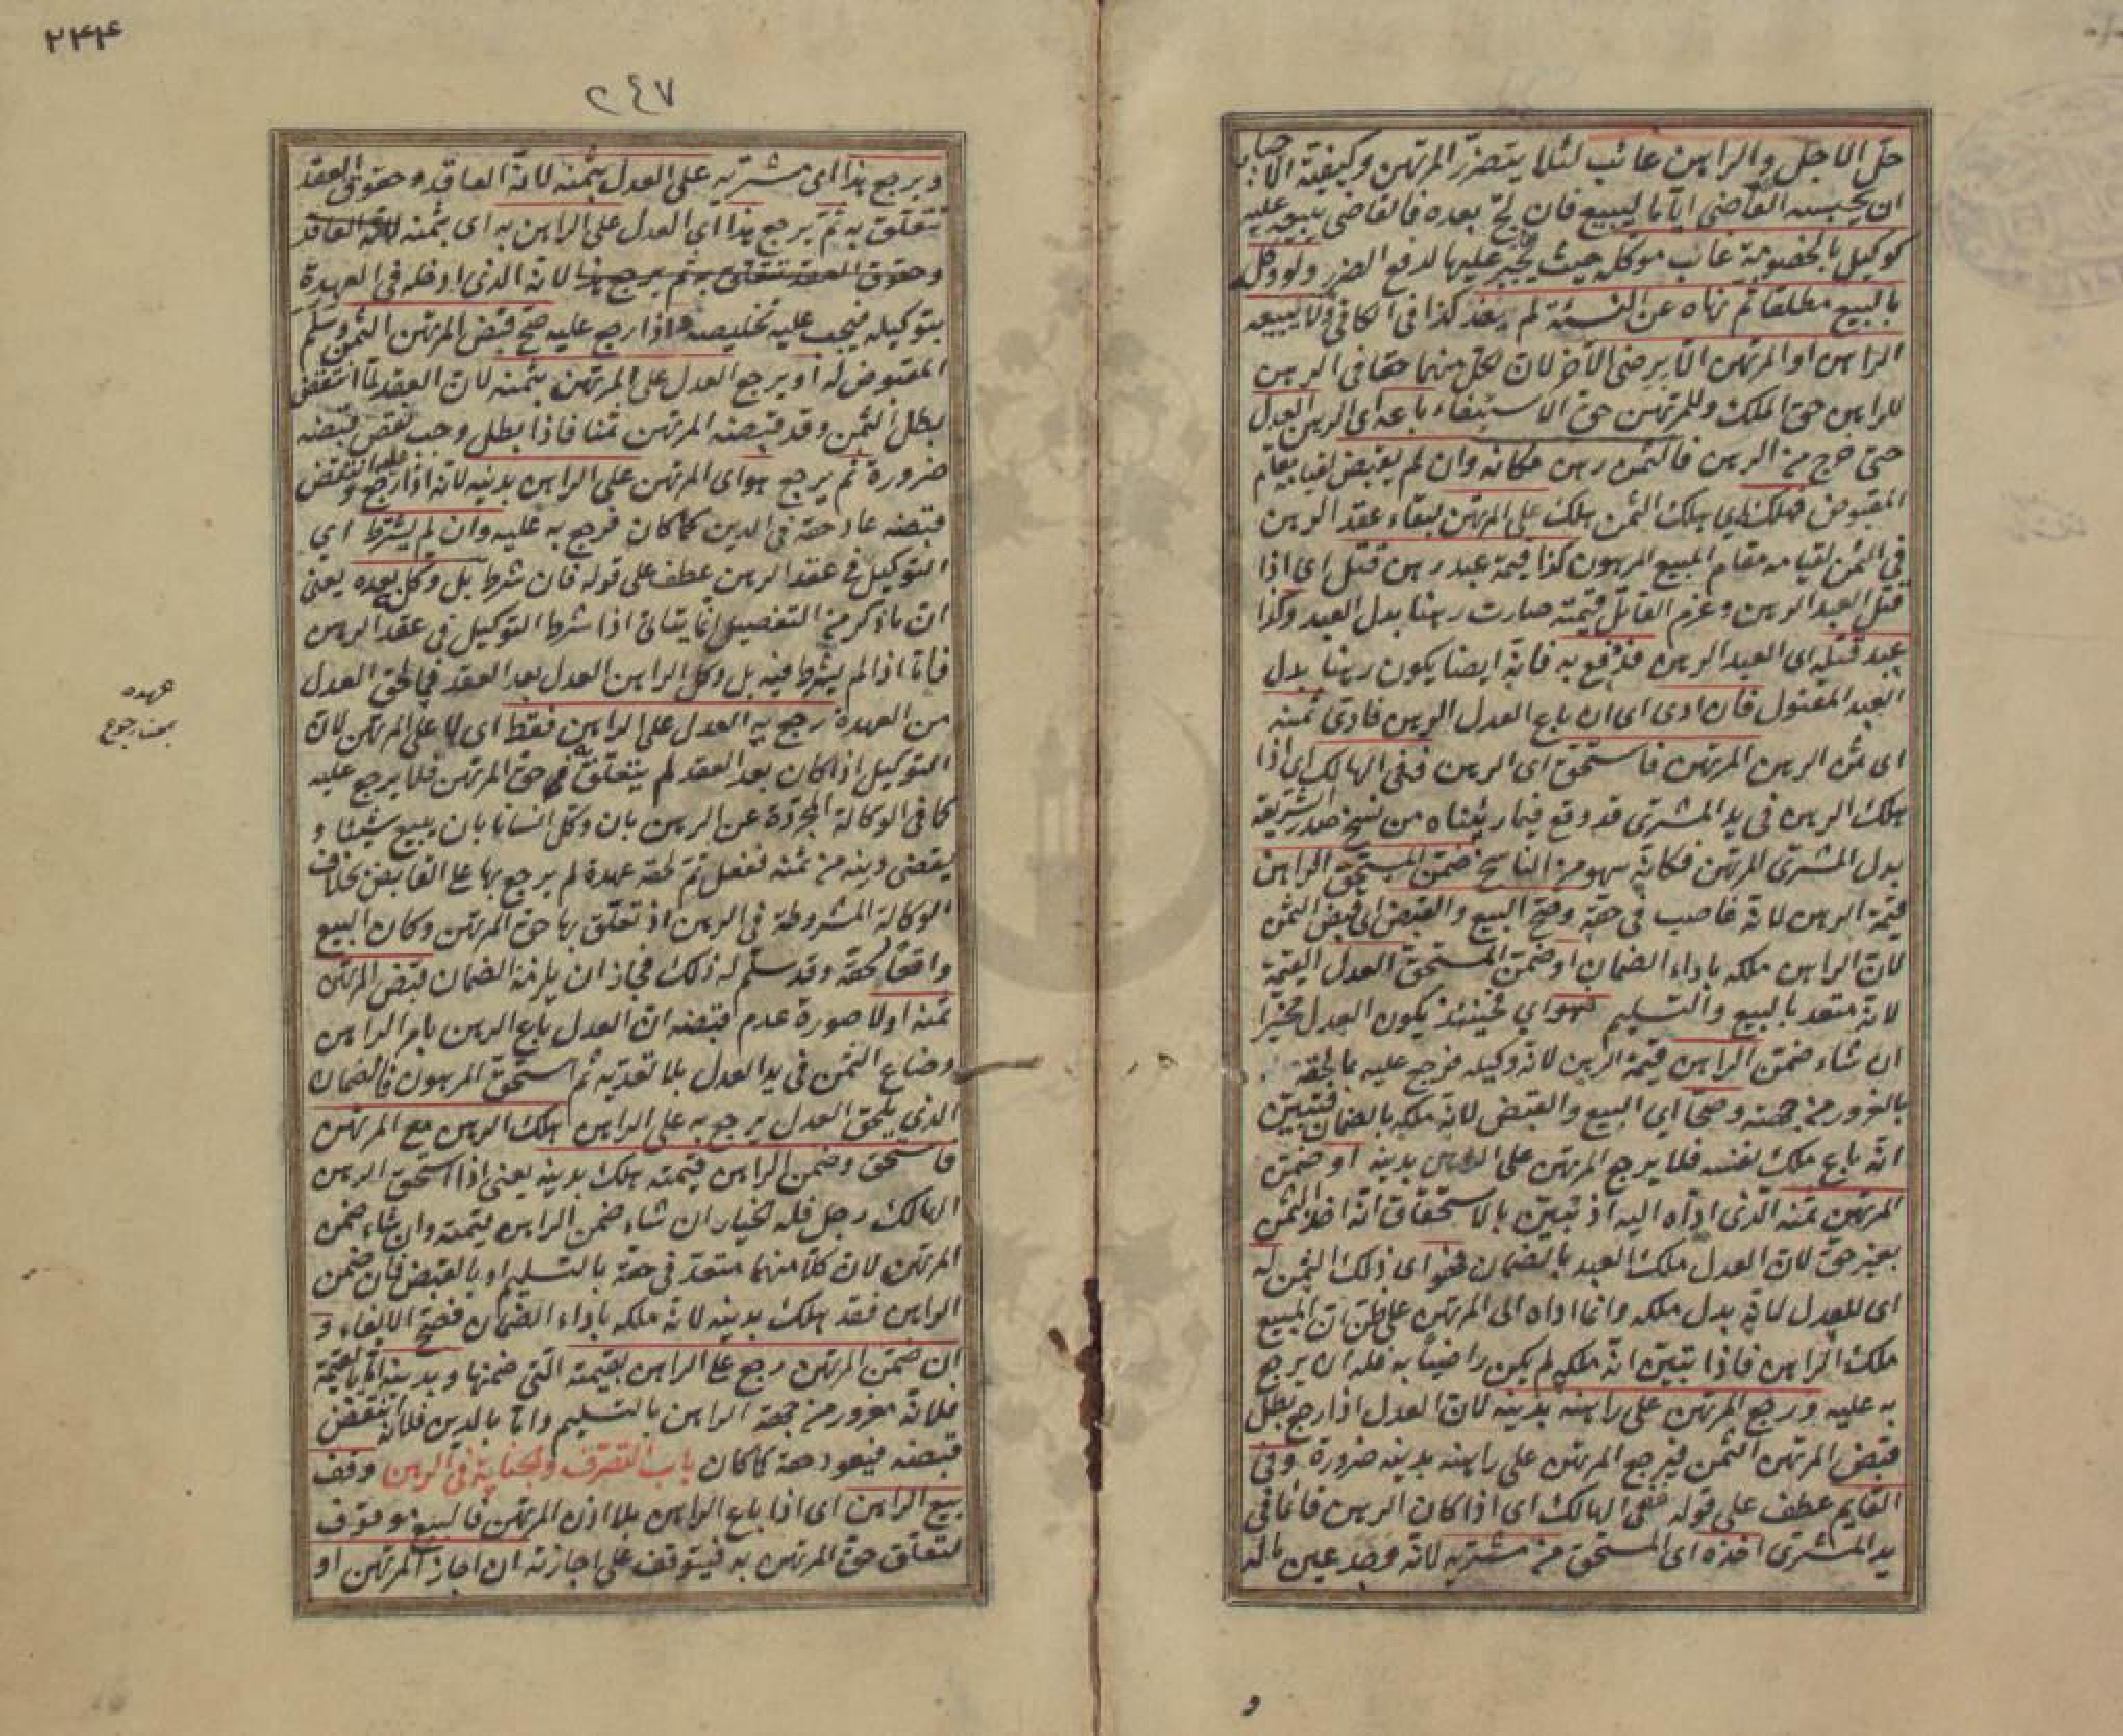 حل الاجل والراهن غائب لئلا يتضرر المرتهن وكيفية الاجبار
ان يحبسه القاضى اياما ليبيع فان لج بعده فالقاضى يبيع عليه
كوكيل بالخصومة غاب موكله حيث يجبر عليها لدفع الضرر ولو وكل
بالبيع مطلقا ثم نهاه عن النسئة لم يفد كذا فى الكافى ولا يبيعه
الراهن او المرتهن الا برضى الآخر لان لكل منهما حقا فى الرهن
للراهن حق الملك وللمرتهن حق الاستيفاء باعه اى الرهن العدل
حتى خرج من الرهن فالثمن رهن مكانه وان لم يقبض لقيامه مقام
المقبوض فهلكه اى هلك الثمن هلك على المرتهن لبقاء عقد الرهن
فى الثمن لقيامه مقام المبيع المرهون كذا قيمة عبد رهن قتل اى اذا
قتل العبد الرهن وغرم القاتل قيمته صارت رهنا بدل العبد وكذا
عبد قتله اى العبد الرهن فدفع به فانه ايضا يكون رهنا بدل
العبد المقتول فان ادى اى ان باع العدل الرهن فادى ثمنه
اى ثمن الرهن المرتهن فاستحق اى الرهن ففى الهالك اى اذا
هلك الرهن فى يد المشترى قد وقع فيما رئيناه من نسخ صدر الشريعة
بدل المشترى المرتهن فكانه سهو من الناسخ ضمن المستحق الراهن
قيمة الرهن لانه غاصب فى حقه وصح البيع والقبض اى قبض الثمن
لان الراهن ملكه باداء الضمان او ضمن المستحق العدل القيمة
لانه متعد بالبيع والتسليم فهو اى فحينئذ يكون العدل مخيرا
ان شاء ضمن الراهن قيمة الرهن لانه وكيله فرجع عليه بما لحقه
بالغرور من جهته وصحا اى البيع والقبض لانه ملكه بالضمان فتبين
انه باع ملك نفسه فلا يرجع المرتهن على الراهن بدينه او ضمن
المرتهن ثمنه الذى اداه اليه اذ تبين بالاستحقاق انه اخذ الثمن
بغير حق لان العدل ملك العبد بالضمان فهو اى ذلك الثمن له
اى للعدل لانه بدل ملكه وانما اداه الى المرتهن على ظن ان المبيع
ملك الراهن فاذا تبين انه ملكه لم يكن راضيا به فله ان يرجع
به عليه ورجع المرتهن على راهنه بدينه لان العدل اذا رجع بطل
قبض المرتهن الثمن فيرجع المرتهن على راهنه بدينه ضرورة وفى
القايم عطف على قوله ففى الهالك اى اذا كان الرهن قائما فى
يد المشترى اخذه اى المستحق من مشتريه لانه وجد عين ماله
و
٢٤٤
٢٤٧
ويرجع هذا اى مشتريه على العدل بثمنه لانه العاقد وحقوق العقد
تتعلق به ثم يرجع هذا اى العدل على الراهن به اى بثمنه لانه العاقد
وحقوق العقد تتعلق به ثم يرجع هذا لانه الذى ادخله فى العهدة
بتوكيله فيجب عليه تخليصه واذا رجع عليه صح قبض المرتهن الثمن وسلم
المقبوض له او يرجع العدل على المرتهن بثمنه لان العقد لما انتقض
بطل الثمن وقد قبضه المرتهن ثمنا فاذا بطل وجب نقض قبضه
ضرورة ثم يرجع هو اى المرتهن على الراهن بدينه لانه اذا رجع عليه وانتقض
قبضه عاد حقه فى الدين كما كان فرجع به عليه وان لم يشترط اى
التوكيل فى عقد الرهن عطف على قوله فان شرط بل وكل بعده يعنى
ان ما ذكر من التفصيل انما يتاتى اذا شرط التوكيل فى عقد الرهن
فاما اذا لم يشرط فيه بل وكل الراهن العدل بعد العقد فما لحق العدل
من العهدة رجع به العدل على الراهن فقط اى لا على المرتهن لان
التوكيل اذا كان بعد العقد لم يتعلق به حق المرتهن فلا يرجع عليه
كما فى الوكالة المجردة عن الرهن بان وكل انسانا بان يبيع شيئا و
يقضى دينه من ثمنه ففعل ثم لحقه عهدة لم يرجع بها على القابض بخلاف
الوكالة المشروطة فى الرهن اذ تعلق بها حق المرتهن وكان البيع
واقعا لحقه وقد سلم له ذلك فجاز ان يلزمه الضمان قبض المرتهن
ثمنه او لا صورة عدم قبضه ان العدل باع الرهن بامر الراهن
وضاع الثمن فى يد العدل بلا تعديه ثم استحق المرهون فالضمان
الذى يلحق العدل يرجع به على الراهن هلك الرهن مع المرتهن
فاستحق وضمن الراهن قيمته هلك بدينه يعنى اذا استحق الرهن
الهالك رجل فله الخيار ان شاء ضمن الراهن قيمته وان شاء ضمن
المرتهن لان كلا منهما متعد فى حقه بالتسليم او بالقبض فان ضمن
الراهن فقد هلك بدينه لانه ملكه باداء الضمان فصح الايفاء و
ان ضمن المرتهن رجع على الراهن بقيمته التى ضمنها وبدينه اما بالقيمة
فلانه مغرور من جهة الراهن بالتسليم واما بالدين فلانه انتقض
قبضه فيعود حقه كما كان باب التصرف والجناية فى الرهن وقف
بيع الراهن اى اذا باع الراهن بلا اذن المرتهن فالبيع موقوف
لتعلق حق المرتهن به فيتوقف على اجازته ان اجاز المرتهن او
عهده
بمعنا رجوع